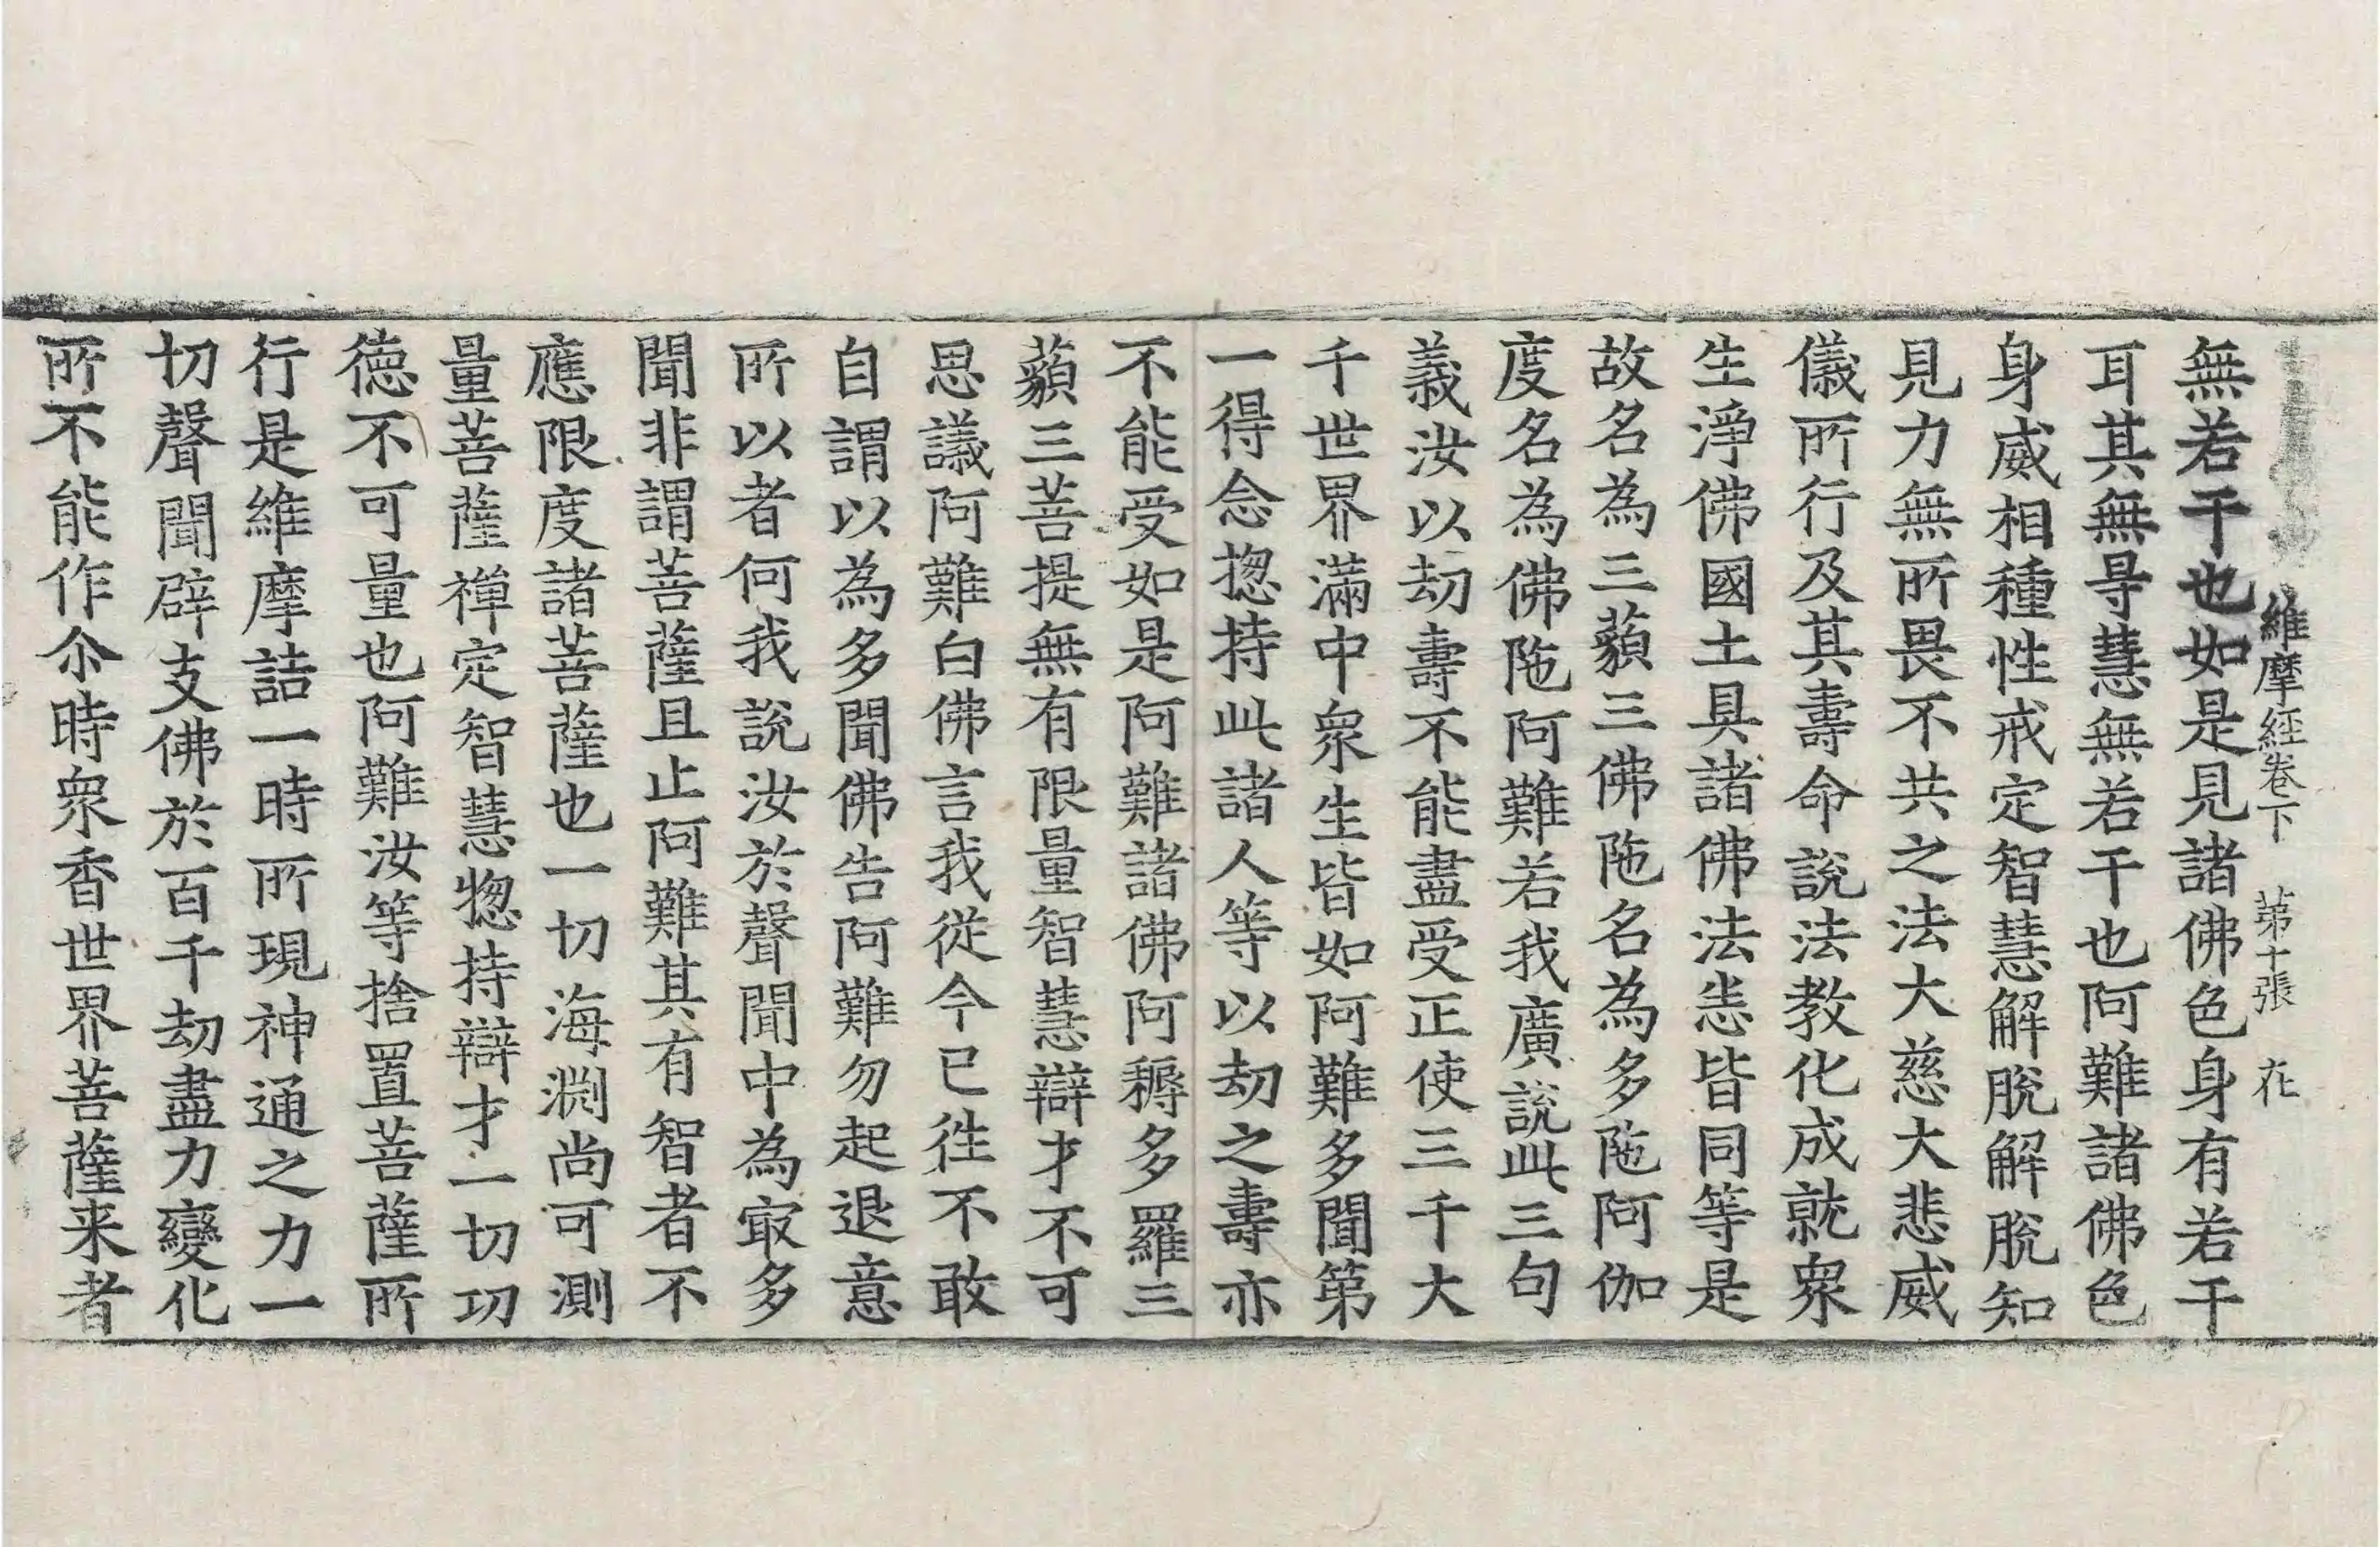 維摩經卷下　苐十張　在
無若干也如是見諸佛色身有若干
耳其無㝵慧無若干也阿難諸佛色
身威相種性戒定智慧解脫解脫知
見力無所畏不共之法大慈大悲威
儀所行及其壽命說法教化成就衆
生淨佛國土具諸佛法悉皆同等是
故名為三藐三佛陁名為多陁阿伽
度名為佛陁阿難若我廣說此三句
義汝以劫壽不能盡受正使三千大
千世界滿中衆生皆如阿難多聞第
一得念揔持此諸人等以劫之壽亦
不能受如是阿難諸佛阿耨多羅三
藐三菩提無有限量智慧辯才不可
思議阿難白佛言我從今已徃不敢
自謂以為多聞佛告阿難勿起退意
所以者何我說汝於聲聞中為冣多
聞非謂菩薩且止阿難其有智者不
應限度諸菩薩也一切海淵尚可測
量菩薩禪定智慧惣持辯才一切功
德不可量也阿難汝等捨置菩薩所
行是維摩詰一時所現神通之力一
切聲聞辟支佛於百千劫盡力變化
所不能作尒時衆香世界菩薩来者